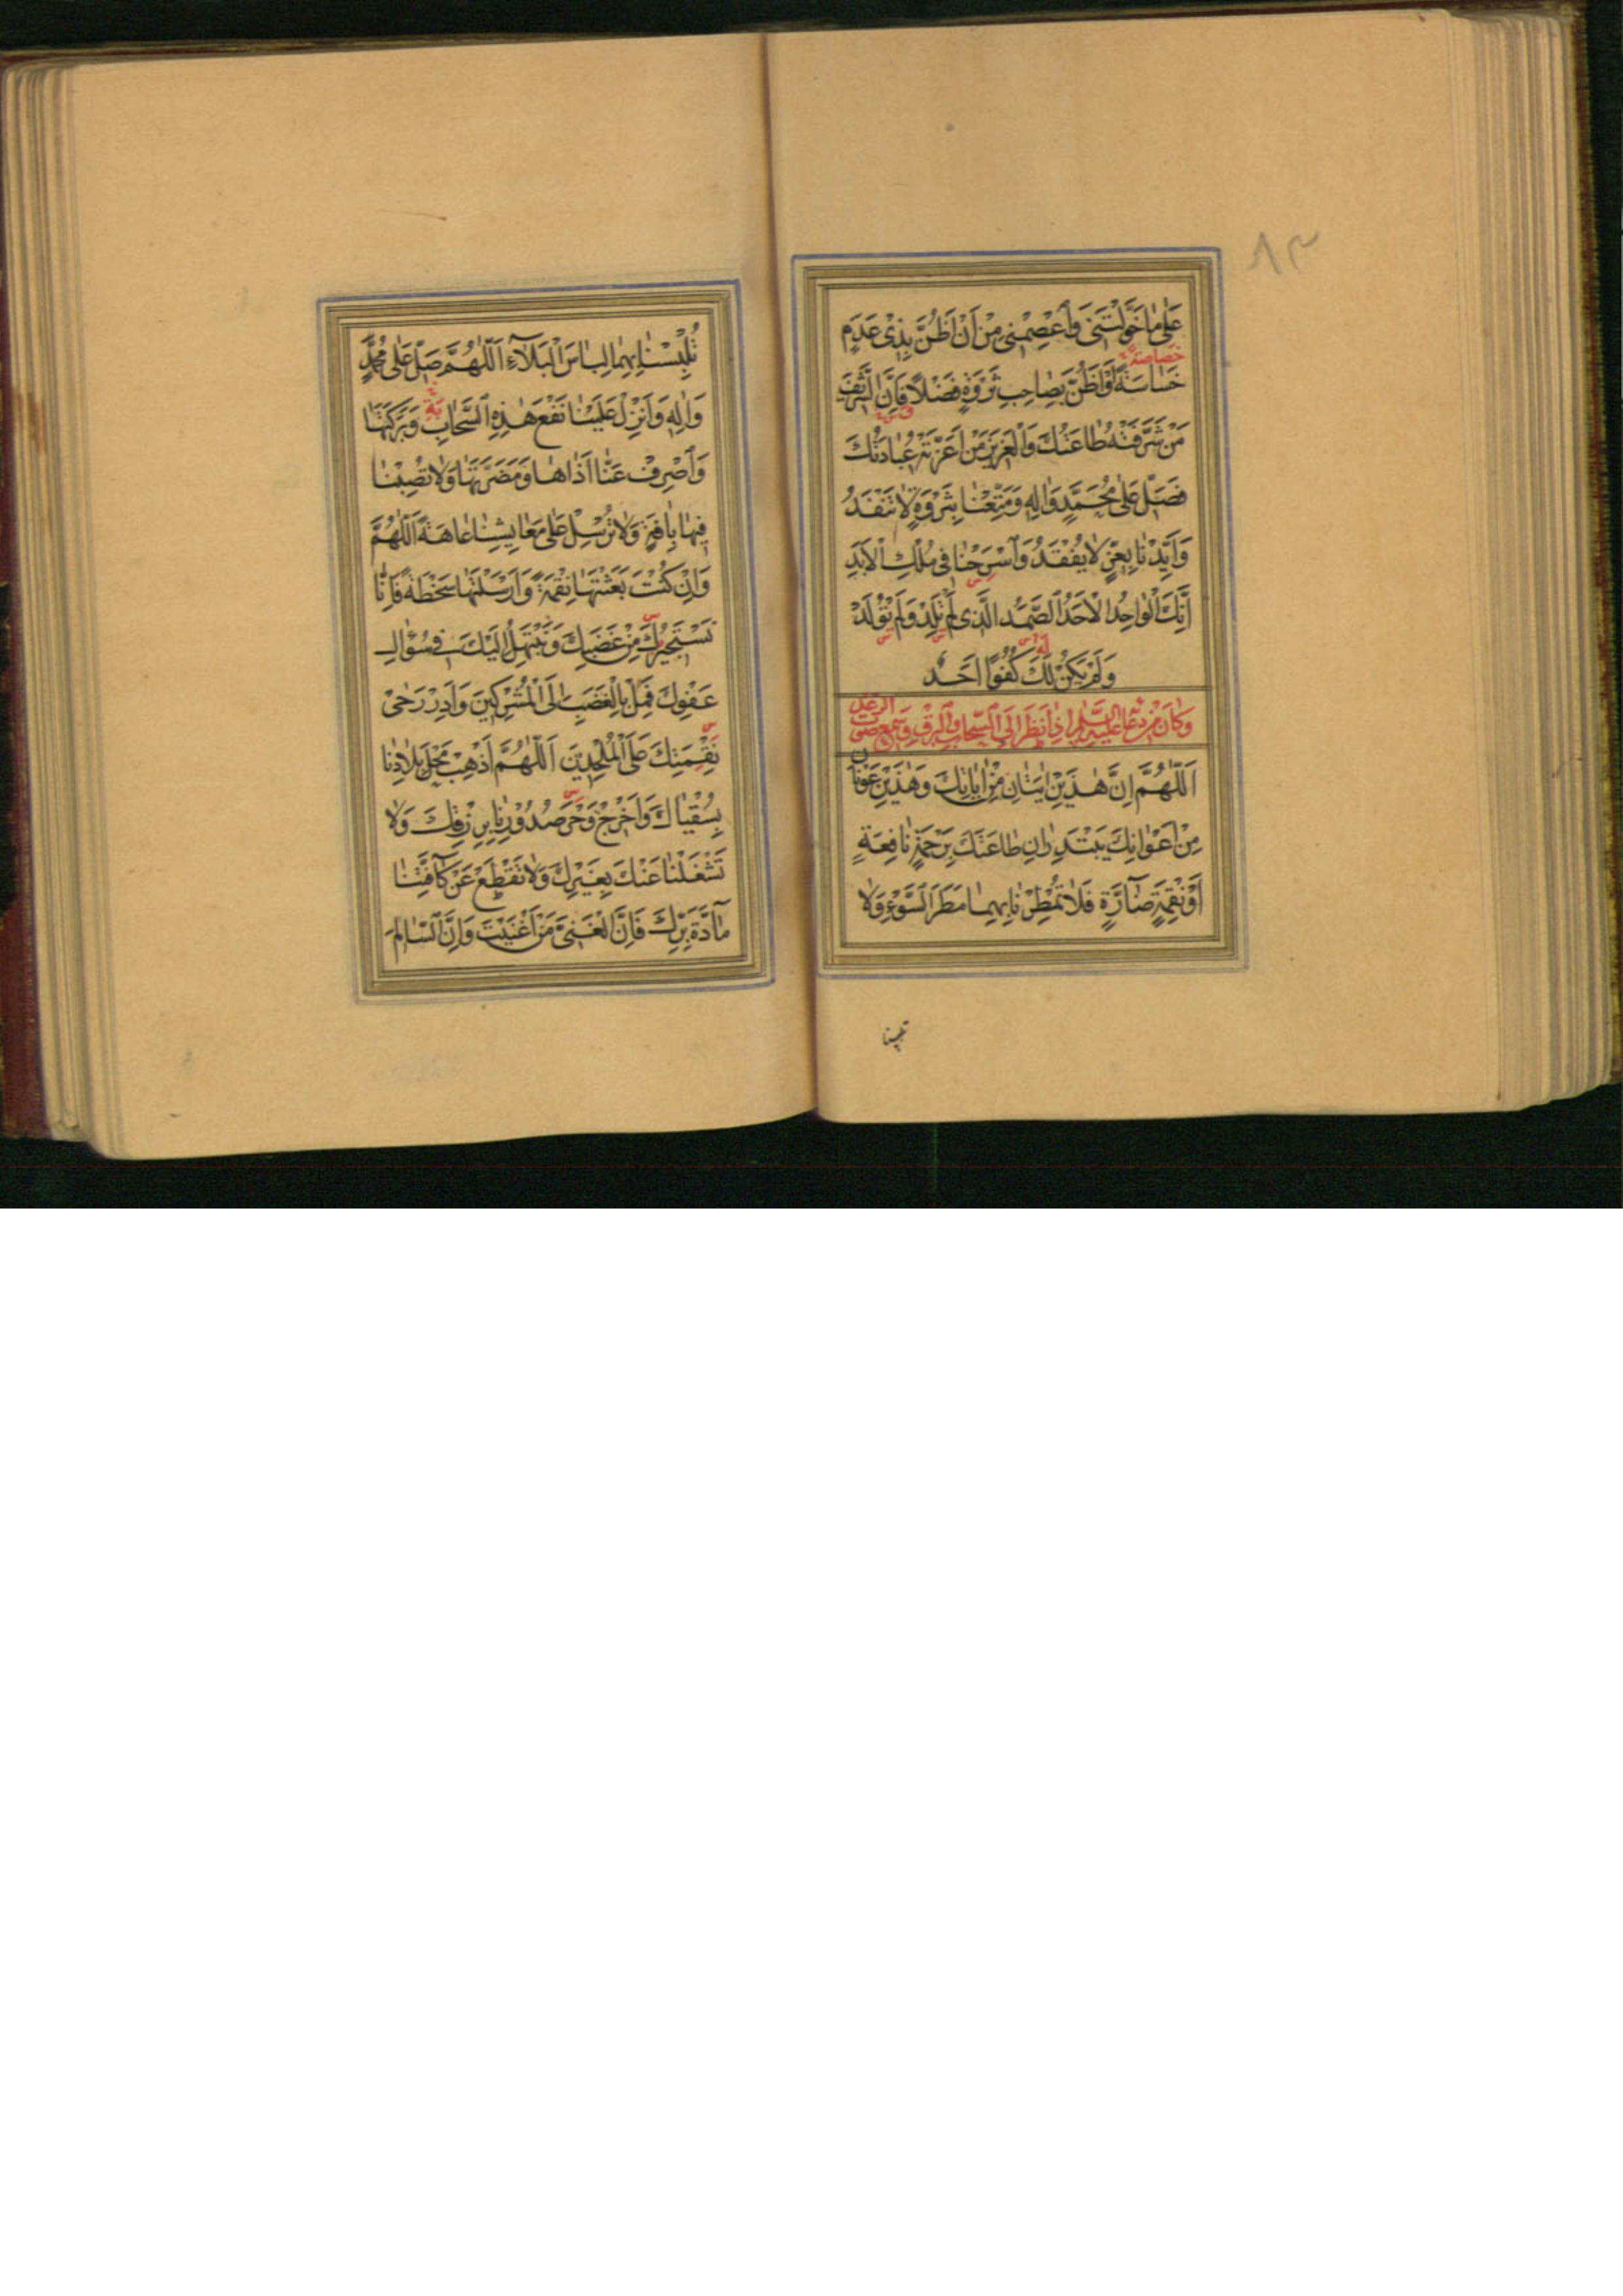 ٨٣
عَلٰى مٰا خَوَّلْتَنى وَاَعْصِمْنى مِنْ اَنْ اَظُنَّ بِذى عَدَمٍ
خصاصة
خَسٰاسَةً اَوْ اَظُنَّ بِصٰاحِبِ ثَرْوَةٍ فَضْلًا فَاِنَّ الشَّريفَ
مَنْ شَرَّفَتْهُ طٰاعَتُكَ وَالْعَزيزَ مَنْ اَعَزَّتْهُ عِبٰادَتُكَ
فَصَلِّ عَلٰى مُحَمَّدٍ وَاٰلِهِ وَمَتِّعْنٰا بِثَرْوَةٍ لٰا تَنْفَدُ
وَاَيِّدْنٰا بِعِزٍّ لٰا يُفْقَدُ وَاَسْرِحْنٰا فى مُلْكِ الْاَبَدِ
اِنَّكَ الْوٰاحِدُ الْاَحَدُ الصَّمَدُ الَّذى لَمْ تَلِدْ وَلَمْ تُولَدْ
وَلَمْ يَكُنْ لَكَ كُفُوًا اَحَدٌ
وَكٰانَ مِنْ دُعٰائِهِ عَلَيْهِ السَّلٰامُ اِذٰا نَظَرَ اِلَى السَّحٰابِ وَالْبَرْقِ وَسَمِعَ صَوْتَ الرَّعْدِ
اَللّٰهُمَّ اِنَّ هٰذَيْنِ اٰيَتٰانِ مِنْ اٰيٰاتِكَ وَهٰذَيْنِ عَوْنٰانِ
مِنْ اَعْوٰانِكَ يَبْتَدِرٰانِ طٰاعَتَكَ بِرَحْمَةٍ نٰافِعَةٍ
اَوْ نَقِمَةٍ ضٰآرَّةٍ فَلٰا تُمْطِرْنٰا بِهِمٰا مَطَرَ السَّوْءِ وَلٰا
تلبسنا
تُلْبِسْنٰا بِهِمٰا لِبٰاسَ الْبَلٰآءِ اَللّٰهُمَّ صَلِّ عَلٰى مُحَمَّدٍ
وَاٰلِهِ وَاَنْزِلْ عَلَيْنٰا نَفْعَ هٰذِهِ السَّحٰابِ وَبَرَكَتَهٰا
وَاَصْرِفْ عَنّٰا اَذٰاهٰا وَمَضَرَّتَهٰا وَلٰا تُصِبْنٰا
فيهٰا بِاٰفَةٍ وَلٰا تُرْسِلْ عَلٰى مَعٰايِشِنٰا عٰاهَةً اَللّٰهُمَّ
وَاِنْ كُنْتَ بَعَثْتَهٰا نِقْمَةً وَاَرْسَلْتَهٰا سَخْطَةً فَاِنّٰا
نَسْتَجيرُكَ مِنْ غَضَبِكَ وَنَبْتَهِلُ اِلَيْكَ فى سُؤٰالِ
عَفْوِكَ فَمِلْ بِالْغَضَبِ اِلَى الْمُشْرِكينَ وَاَدِرْ رَحٰى
نَقِمَتِكَ عَلَى الْمُلْحِدينَ اَللّٰهُمَّ اَذْهِبْ مَحْلَ بِلٰادِنٰا
بِسُقْيٰاكَ وَاَخْرِجْ وَحَرَ صُدُوْرِنٰا بِرِزْقِكَ وَلٰا
تَشْغَلْنٰا عَنْكَ بِغَيْرِكَ وَلٰا تَقْطَعْ عَنْ كٰآفَّتِنٰا
مٰآدَّةَ بِرِّكَ فَاِنَّ الْغَنِىَّ مَنْ اَغْنَيْتَ وَاِنَّ السّٰالِمَ